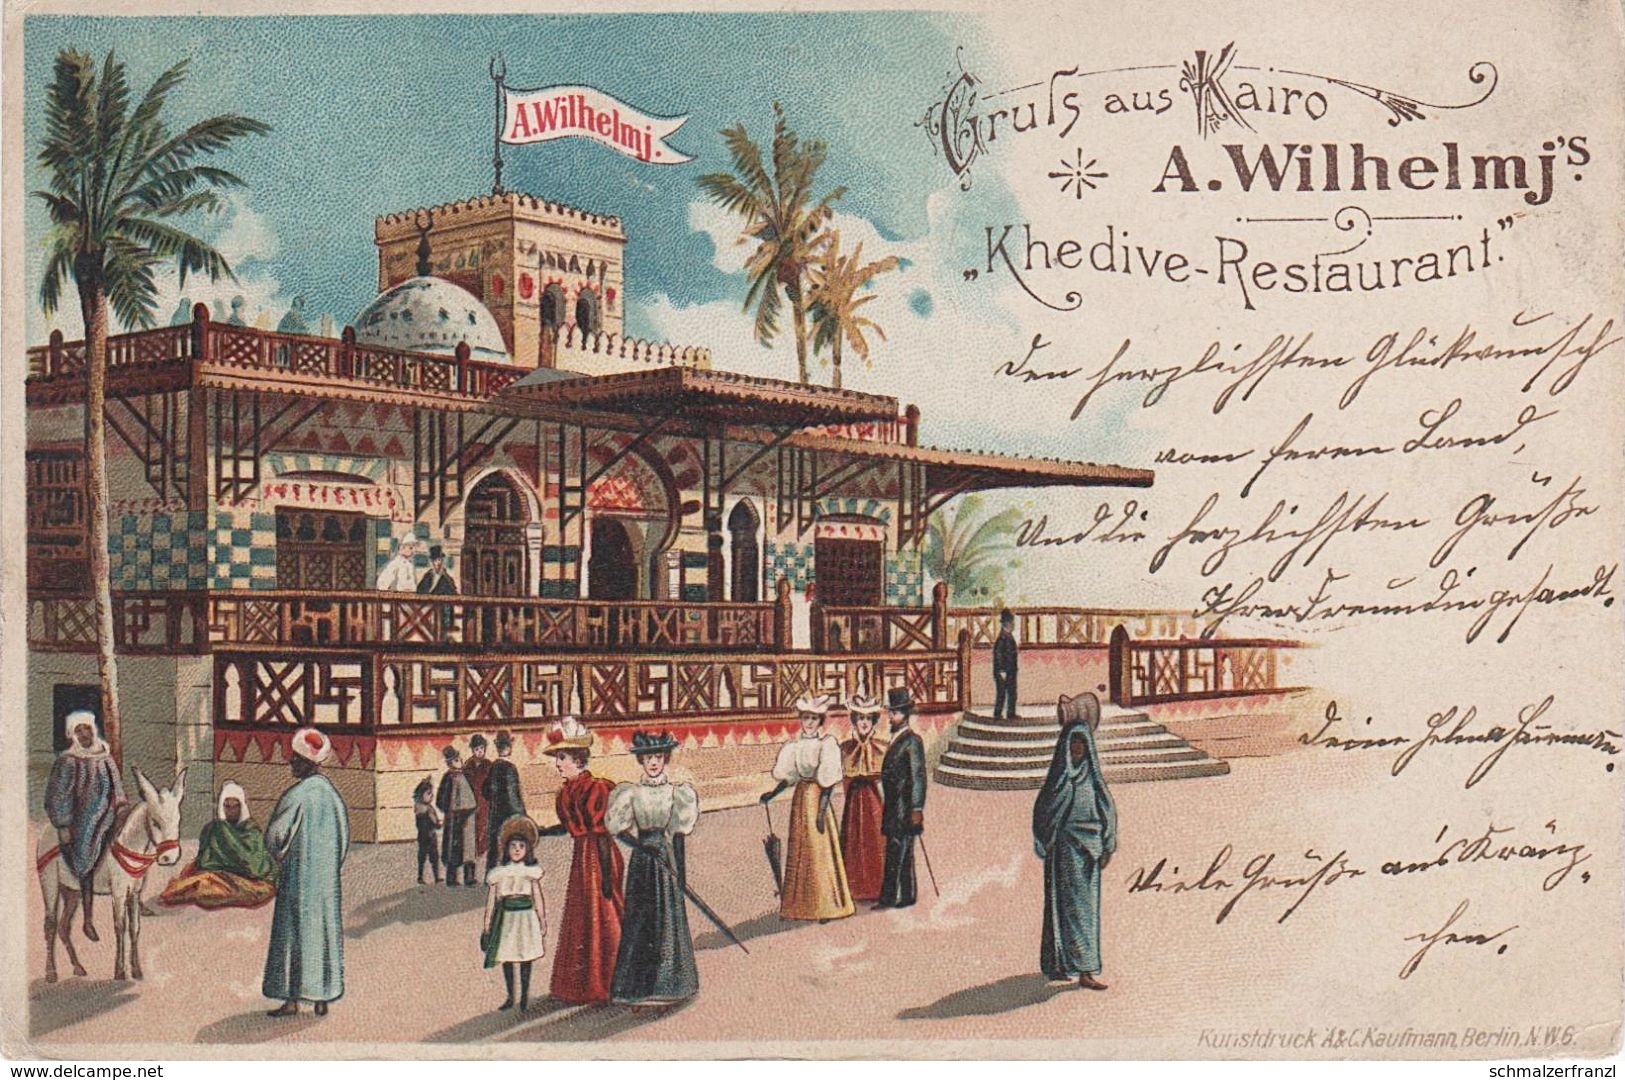 A.Wilhelmj.
Gruſs aus Kairo
A.Wilhelmj's
„Khedive-Restaurant."
den herzlichsten Glückwunsch
vom feren Land,
Und die herzlichsten Grüße
Ihrer Freundin gesandt.
Deine Helma
Viele Grüße an's Kränz„
chen.
Kunstdruck A&C.Kaufmann, Berlin, N.W.6.
www.delcampe.net
schmalzerfranzl